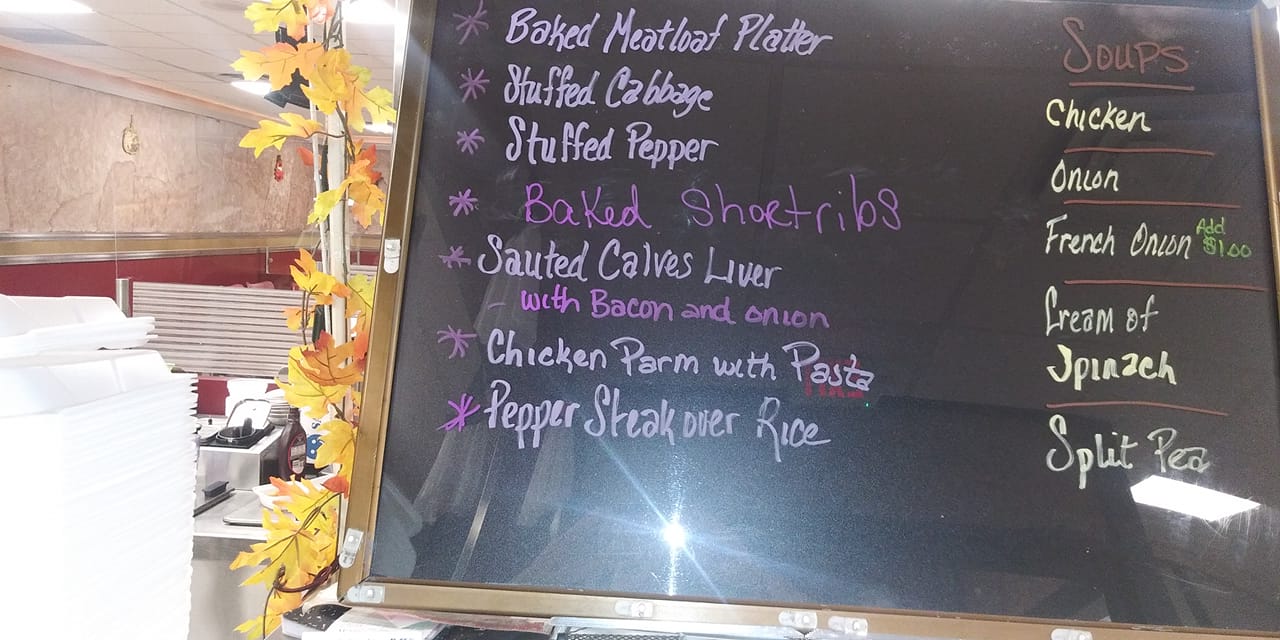 * Baked Meatloaf Platter
* Stuffed Cabbage
* Stuffed Pepper
* Baked Shortribs
* Sauted Calves Liver
- with Bacon and onion
* Chicken Parm with Pasta
* Pepper Steak over Rice
Soups
Chicken
Onion
French Onion Add $1.00
Cream of
Spinach
Split Pea